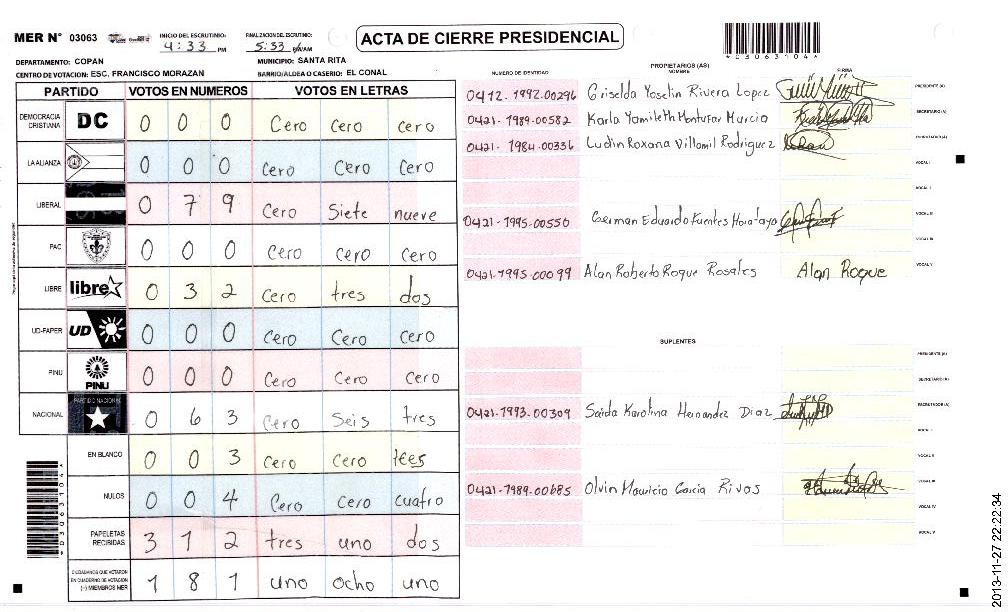 MER N° 03063
INICIO DEL ESCRUTINIO: 4:33 PM
FINALIZACION DEL ESCRUTINIO: 5:33 PM/AM
ACTA DE CIERRE PRESIDENCIAL
*D3063104*
DEPARTAMENTO: COPAN
MUNICIPIO: SANTA RITA
CENTRO DE VOTACION: ESC. FRANCISCO MORAZAN
BARRIO/ALDEA O CASERIO: EL CONAL
PARTIDO VOTOS EN NUMEROS VOTOS EN LETRAS
DEMOCRACIA CRISTIANA DC 0 0 0 Cero cero cero
LA ALIANZA 0 0 0 Cero Cero cero
LIBERAL 0 7 9 Cero Siete nueve
PAC 0 0 0 Cero cero cero
LIBRE libre 0 3 2 Cero tres dos
UD-FAPER UD 0 0 0 Cero Cero cero
PINU PINU 0 0 0 Cero Cero Cero
NACIONAL PARTIDO NACIONAL 0 6 3 Cero Seis tres
EN BLANCO 0 0 3 Cero Cero tres
NULOS 0 0 4 Cero cero cuatro
PAPELETAS RECIBIDAS 3 1 2 tres uno dos
CIUDADANOS QUE VOTARON EN CUADERNO DE VOTACION (-) MIEMBROS MER 1 8 1 uno ocho uno
*D3063104*
PROPIETARIOS (AS)
NUMERO DE IDENTIDAD NOMBRE FIRMA
0412-1992-00296 Griselda Yoselin Rivera Lopez PRESIDENTE (A)
0421-1989-00582 Karla Yamileth Montufar Murcia SECRETARIO (A)
0421-1984-00336 Ludin Roxana Villamil Rodriguez ESCRUTADOR (A)
VOCAL I
VOCAL II
0421-1995-00550 German Eduardo Fuentes VOCAL III
VOCAL IV
0421-1995-00099 Alan Roberto Roque Rosales Alan Roque VOCAL V
SUPLENTES
PRESIDENTE (A)
SECRETARIO (A)
0421-1993-00309 Saida Karolina Hernandez Diaz ESCRUTADOR (A)
VOCAL I
VOCAL II
0421-1989-00685 Olvin Mauricio Garcia Rivas VOCAL III
VOCAL IV
VOCAL V
2013-11-27 22:22:34